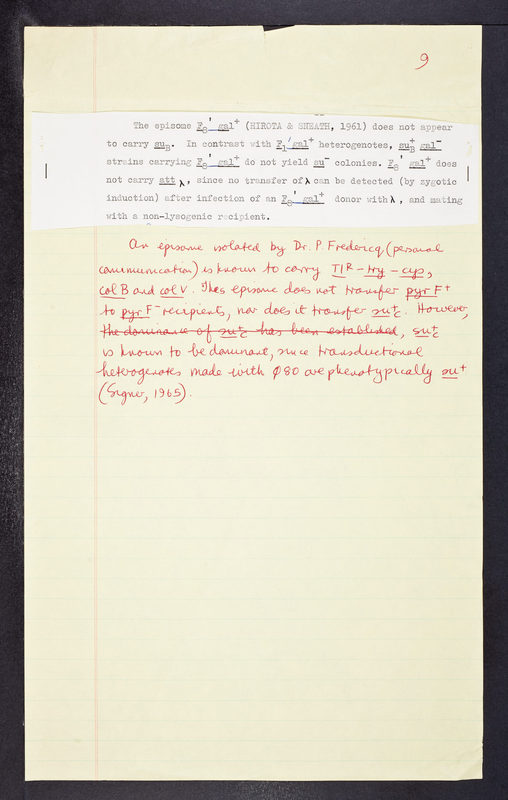 9
The episome F8' gal+ (HIROTA & SNEATH, 1961) does not appear
to carry suB. In contrast with F1' gal+ heterogenotes, suB+ gal-
strains carrying F8' gal+ do not yield su- colonies. F8' gal+ does
not carry att λ, since no transfer of λ can be detected (by zygotic
induction) after infection of an F8' gal+ donor with λ, and mating
with a non-lysogenic recipient.
An episome isolated by Dr. P. Fredericq (personal
communication) is known to carry T1R - try - cys,
col B and col V. This episome does not transfer pyr F+
to pyr F- recipients, nor does it transfer su+C. However,
the dominance of su+C has been established, su+C
is known to be dominant, since transductional
heterogenotes made with Ø80 are phenotypically su+
(Signer, 1965).